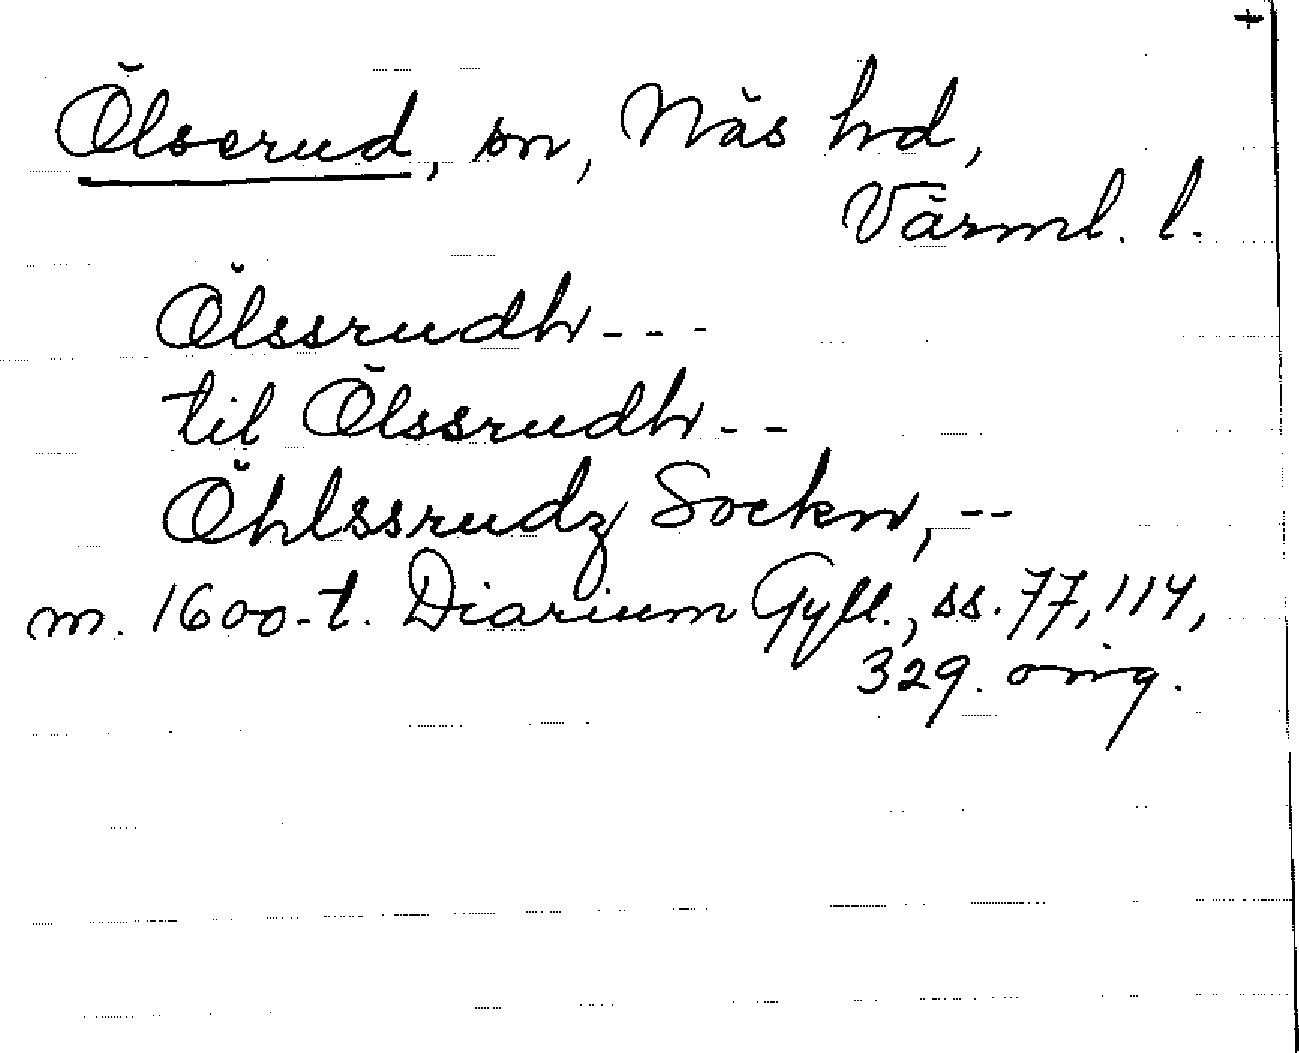 +
Ölserud, sn, Näs hd,
Värml. l.
Ölssrudh - - -
til Ölssrudh - -
Öhlssrudz Sockn, --
m. 1600-t. Diarium Gyll., ss. 77, 114,
329. orig.